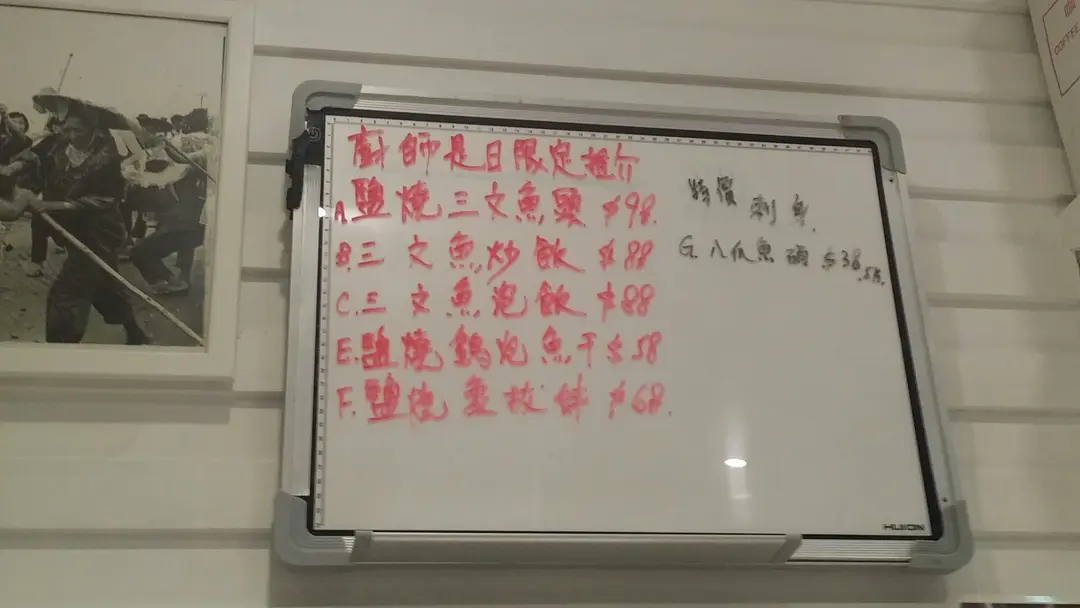 廚師是日限定推介
A.鹽燒三文魚頭 $98.
B.三文魚炒飯 $88
C.三文魚泡飯 $88
E.鹽燒魚干 $58
F.鹽燒 $68.
特價刺身.
G.八爪魚 $38
HUION
COFFEE